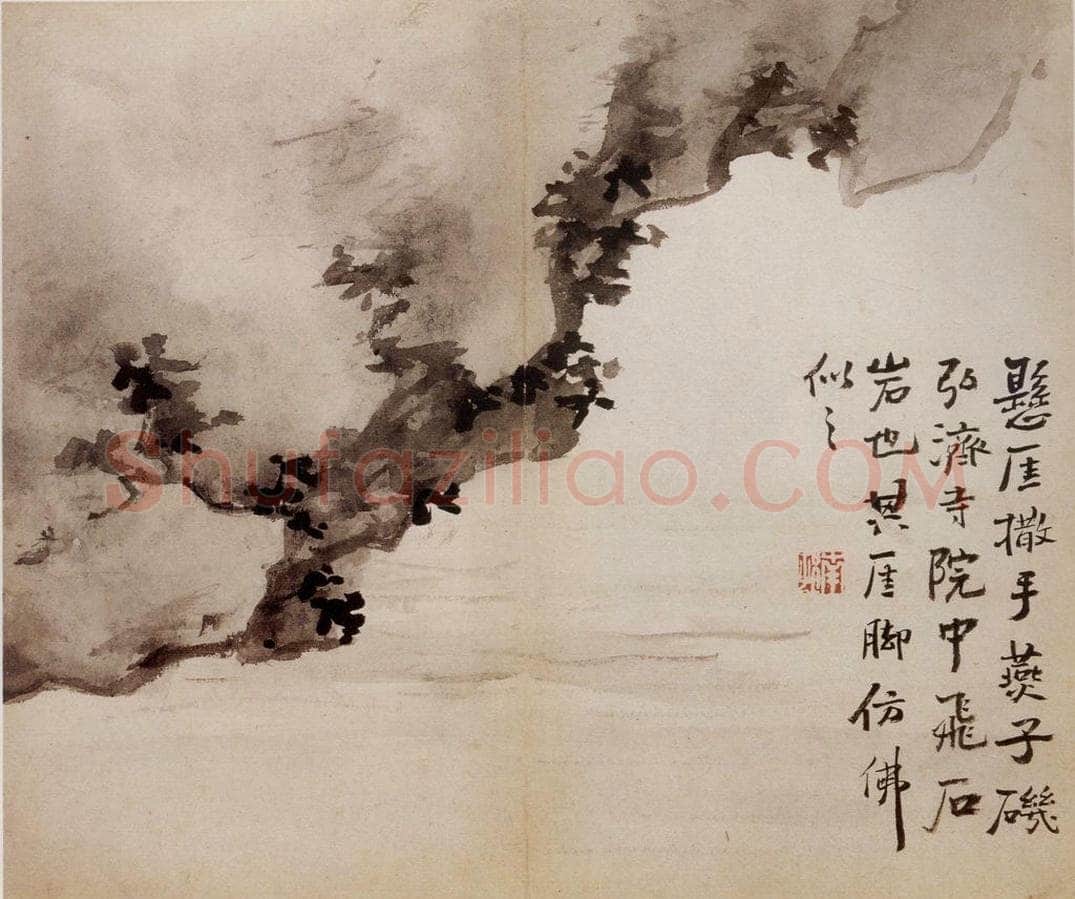 懸厓撒手燕子磯
弘濟寺院中飛石
岩也其厓脚仿佛
似之
Shufaziliao.COM